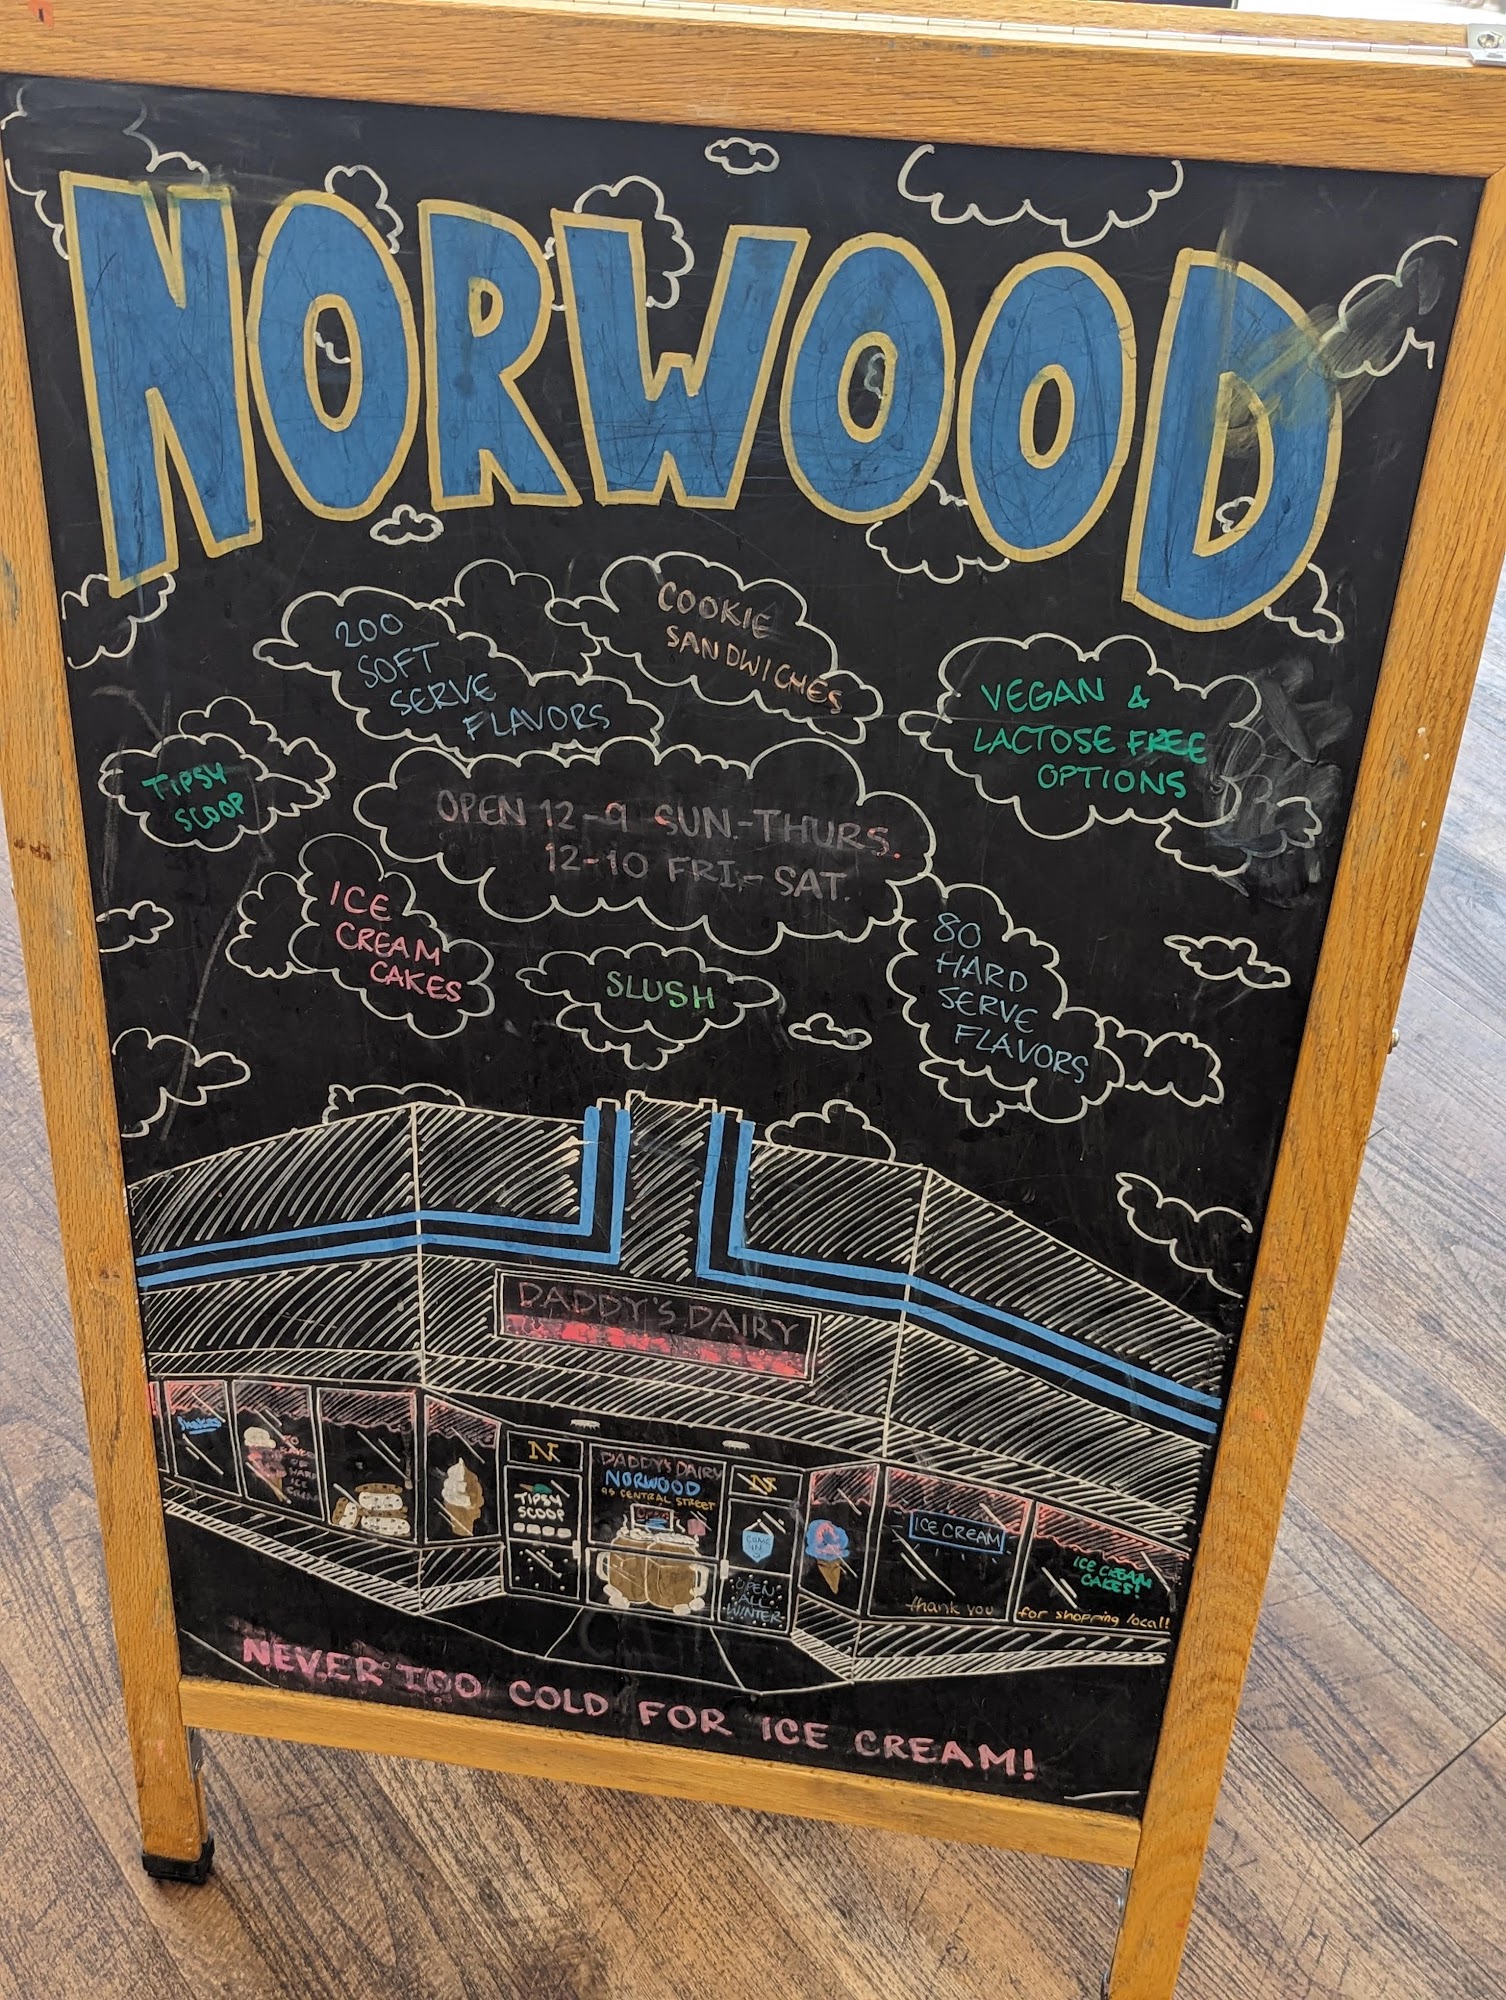 NORWOOD
200
SOFT
SERVE
FLAVORS
COOKIE
SANDWICHES
VEGAN &
LACTOSE FREE
OPTIONS
TIPSY
SCOOP
OPEN 12-9 SUN.-THURS.
12-10 FRI.-SAT.
ICE
CREAM
CAKES
SLUSH
80
HARD
SERVE
FLAVORS
DADDY'S DAIRY
Shakes
OF
HARD
ICE
CREAM
N
TIPSY
SCOOP
DADDY'S DAIRY
NORWOOD
95 CENTRAL STREET
OPEN
N
COME
IN
OPEN
ALL
WINTER
ICE CREAM
thank you
ICE CREAM
CAKES!
for shopping local!
NEVER TOO COLD FOR ICE CREAM!